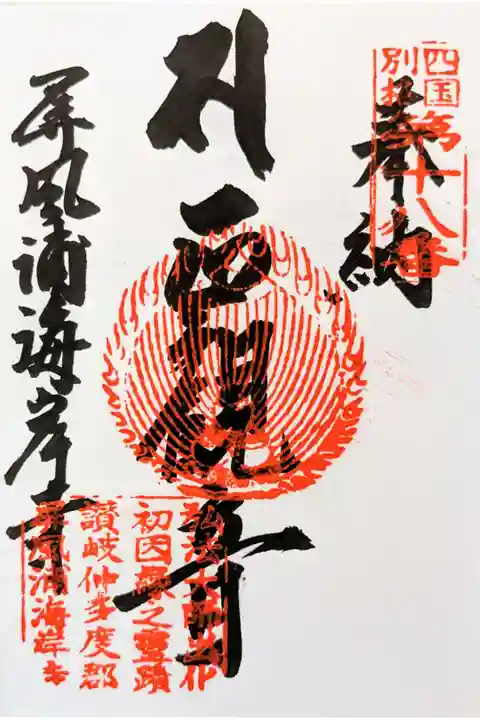 四国
別格
第十八番
奉納
弘法大師出化
初因縁之霊蹟
讃岐仲多度郡
屏風浦海岸寺
屏風浦海岸寺